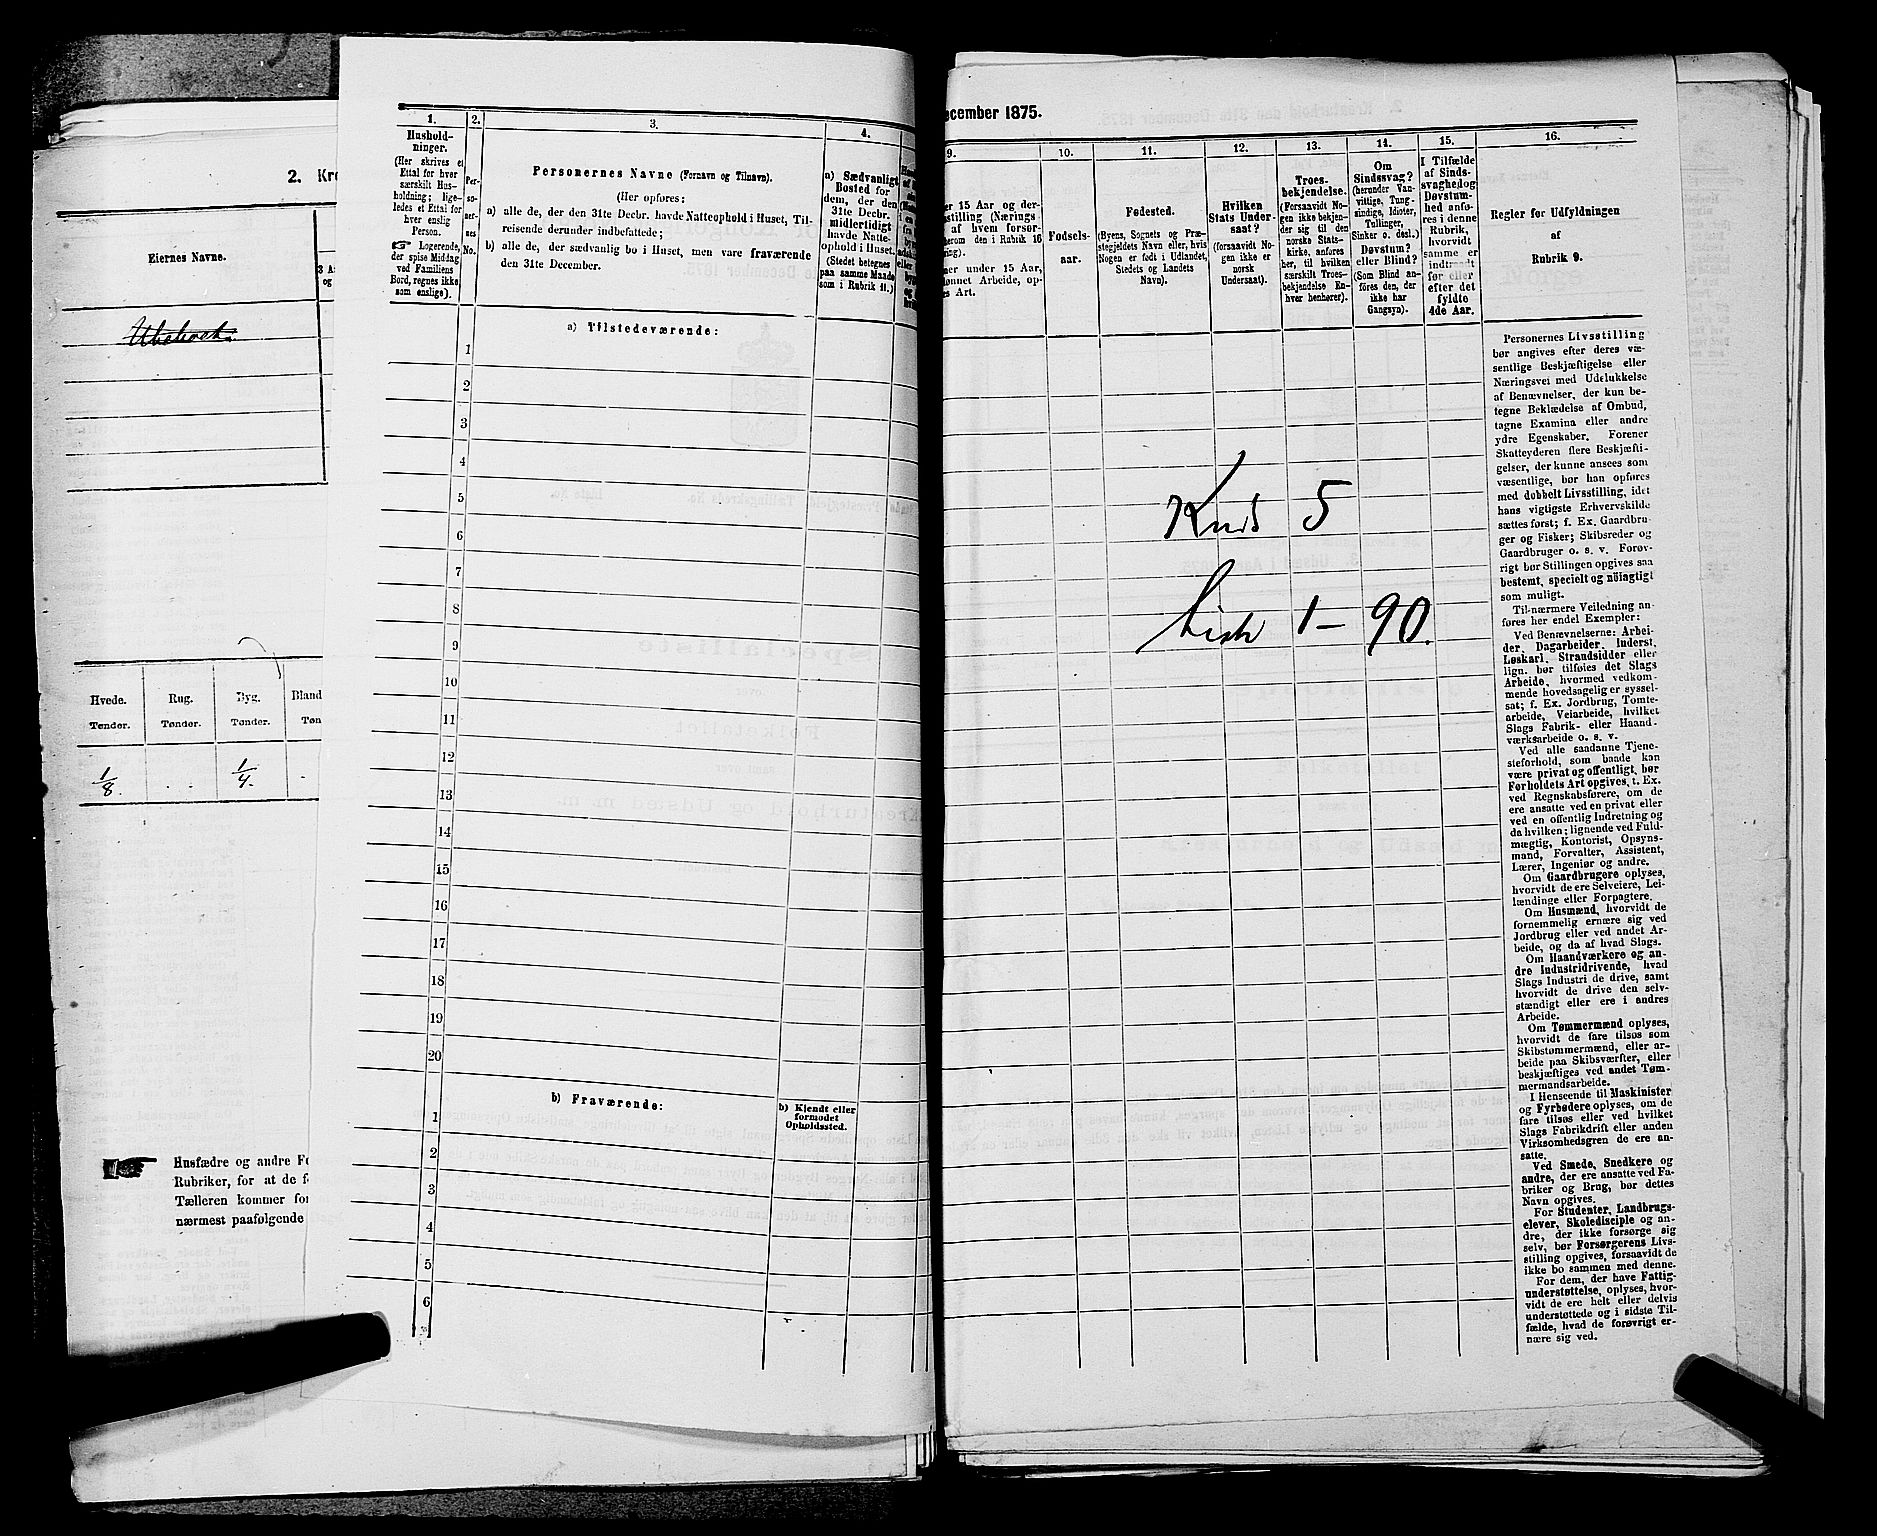 2. Kre
Eiernes Navne.
3 A
og
Ubeboet.
Hvede.
Tønder.
Rug.
Tønder.
Byg.
Tønder.
Bland
Tøn
1/8.
. .
1/4.
Husfædre og andre Fo
Rubriker, for at de f
Tælleren kommer for
nærmest paafølgende
1.
Hushold-
ninger.
(Her skrives et
Ettal for hver
særskilt Hus-
holdning; lige-
ledes et Ettal for
hver enslig
Person.
Logerende,
der spise Middag
ved Familiens
Bord, regnes ikke
som enslige).
2.
Per-
so-
ner-
nes
No.
3.
Personernes Navne (Fornavn og Tilnavn).
(Her opføres:
a) alle de, der den 31te Decbr. havde Natteophold i Huset, Til-
reisende derunder indbefattede;
b) alle de, der sædvanlig bo i Huset, men vare fraværende
den 31te December.
4.
a) Sædvanligt
Bosted for
dem, der den
31te Decbr.
midlertidigt
havde Natte-
ophold i Huset.
(Stedet betegnes
paa samme Maade
som i Rubrik 11.)
a) Tilstedeværende:
1
2
3
4
5
6
7
8
9
10
11
12
13
14
15
16
17
18
19
20
b) Fraværende:
b) Kjendt eller
formodet
Opholdssted.
1
2
3
4
5
6
ecember 1875.
9.
er 15 Aar og der-
stilling (Nærings
af hvem forsør-
herom den i Rubrik 16
ring).
ner under 15 Aar,
ønnet Arbeide, op-
es Art.
10.
Fødsels-
aar.
11.
Fødested.
(Byens, Sognets og Præ-
stegjeldets Navn eller, hvis
Nogen er født i Udlandet,
Stedets og Landets
Navn).
12.
Hvilken
Stats Under-
saat?
(forsaavidt No-
gen ikke er
norsk
Undersaat).
13.
Troes-
bekjendelse.
(Forsaavidt No-
gen ikke bekjen-
der sig til den
norske Stats-
kirke, anføres
her, til hvilken
særskilt Troes-
bekjendelse En-
hver henhører).
14.
Om
Sindssvag?
(herunder Van-
vittige, Tung-
sindige, Idioter,
Tullinger,
Sinker o. desl.)
Døvstum?
eller Blind?
(Som Blind an-
føres den, der
ikke har
Gangsyn).
15.
I Tilfælde
af Sinds-
svaghed og
Døvstum-
hed anfø-
res i denne
Rubrik,
hvorvidt
samme er
indtraadt
før eller
efter det
fyldte
4de Aar.
16.
Regler for Udfyldningen
af
Rubrik 9.
Kreds 5
Liste 1 – 90.
Personernes Livsstilling
bør angives efter deres væ-
sentlige Beskjæftigelse eller
Næringsvei med Udelukkelse
af Benævnelser, der kun be-
tegne Beklædelse af Ombud,
tagne Examina eller andre
ydre Egenskaber. Forener
Skatteyderen flere Beskjæfti-
gelser, der kunne ansees som
væsentlige, bør han opføres
med dobbelt Livsstilling, idet
hans vigtigste Erhvervskilde
sættes først; f. Ex. Gaardbru-
ger og Fisker; Skibsreder og
Gaardbruger o. s. v. Forøv-
rigt bør Stillingen opgives saa
bestemt, specielt og nöiagtigt
som muligt.
Til nærmere Veiledning an-
føres her endel Exempler:
Ved Benævnelserne: Arbei-
der, Dagarbeider, Inderst,
Løskarl, Strandsidder eller
lign. bør tilføies det Slags
Arbeide, hvormed vedkom-
mende hovedsagelig er syssel-
sat; f. Ex. Jordbrug, Tomte-
arbeide, Veiarbeide, hvilket
Slags Fabrik- eller Haand-
værksarbeide o. s. v.
Ved alle saadanne Tjene-
steforhold, som baade kan
være privat og offentligt, bør
Forholdets Art opgives, t. Ex.
ved Regnskabsførere, om de
ere ansatte ved en privat eller
ved en offentlig Indretning og
da hvilken; lignende ved Fuld-
mægtig, Kontorist, Opsyns-
mand, Forvalter, Assistent,
Lærer, Ingeniør og andre.
Om Gaardbrugere oplyses,
hvorvidt de ere Selveiere, Lei-
lændinge eller Forpagtere.
Om Husmænd, hvorvidt de
fornemmelig ernære sig ved
Jordbrug eller ved andet Ar-
beide, og da af hvad Slags.
Om Haandværkere og an-
dre Industridrivende, hvad
Slags Industri de drive, samt
hvorvidt de drive den selv-
stændigt eller ere i andres
Arbeide.
Om Tømmermænd oplyses,
hvorvidt de fare tilsøs som
Skibstømmermænd, eller ar-
beide paa Skibsværfter, eller
beskjæftiges ved andet Tøm-
mermandsarbeide.
I Henseende til Maskinister
og Fyrbødere oplyses, om de
fare tilsøs eller ved hvilket
Slags Fabrikdrift eller anden
Virksomhedsgren de ere an-
satte.
Ved Smede, Snedkere og
andre, der ere ansatte ved Fa-
briker og Brug, bør dettes
Navn opgives.
For Studenter, Landbrugs-
elever, Skoledisciple og an-
dre, der ikke forsørge sig
selv, bør Forsørgerens Livs-
stilling opgives, forsaavidt de
ikke bo sammen med denne.
For dem, der have Fattig-
understøttelse, oplyses, hvor-
vidt de ere helt eller delvis
understøttede og i sidste Til-
fælde, hvad de forøvrigt er-
nære sig ved.